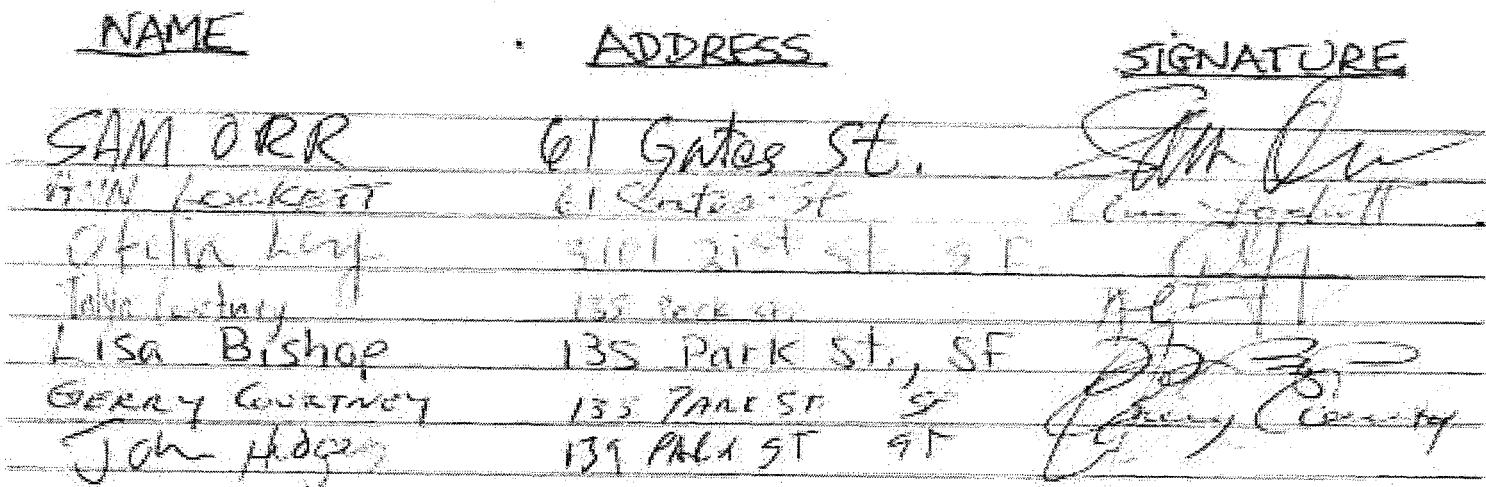 NAME ADDRESS SIGNATURE
SAM ORR 61 Gates St. Sam Orr
ANN LOCKETT 61 Gates St Ann Lockett
Ofelia 21st St. S.F.
Courtney 135 Park St.
Lisa Bishop 135 Park St., SF
GERRY COURTNEY 135 PARK ST SF Gerry Courtney
John 139 PARK ST SF